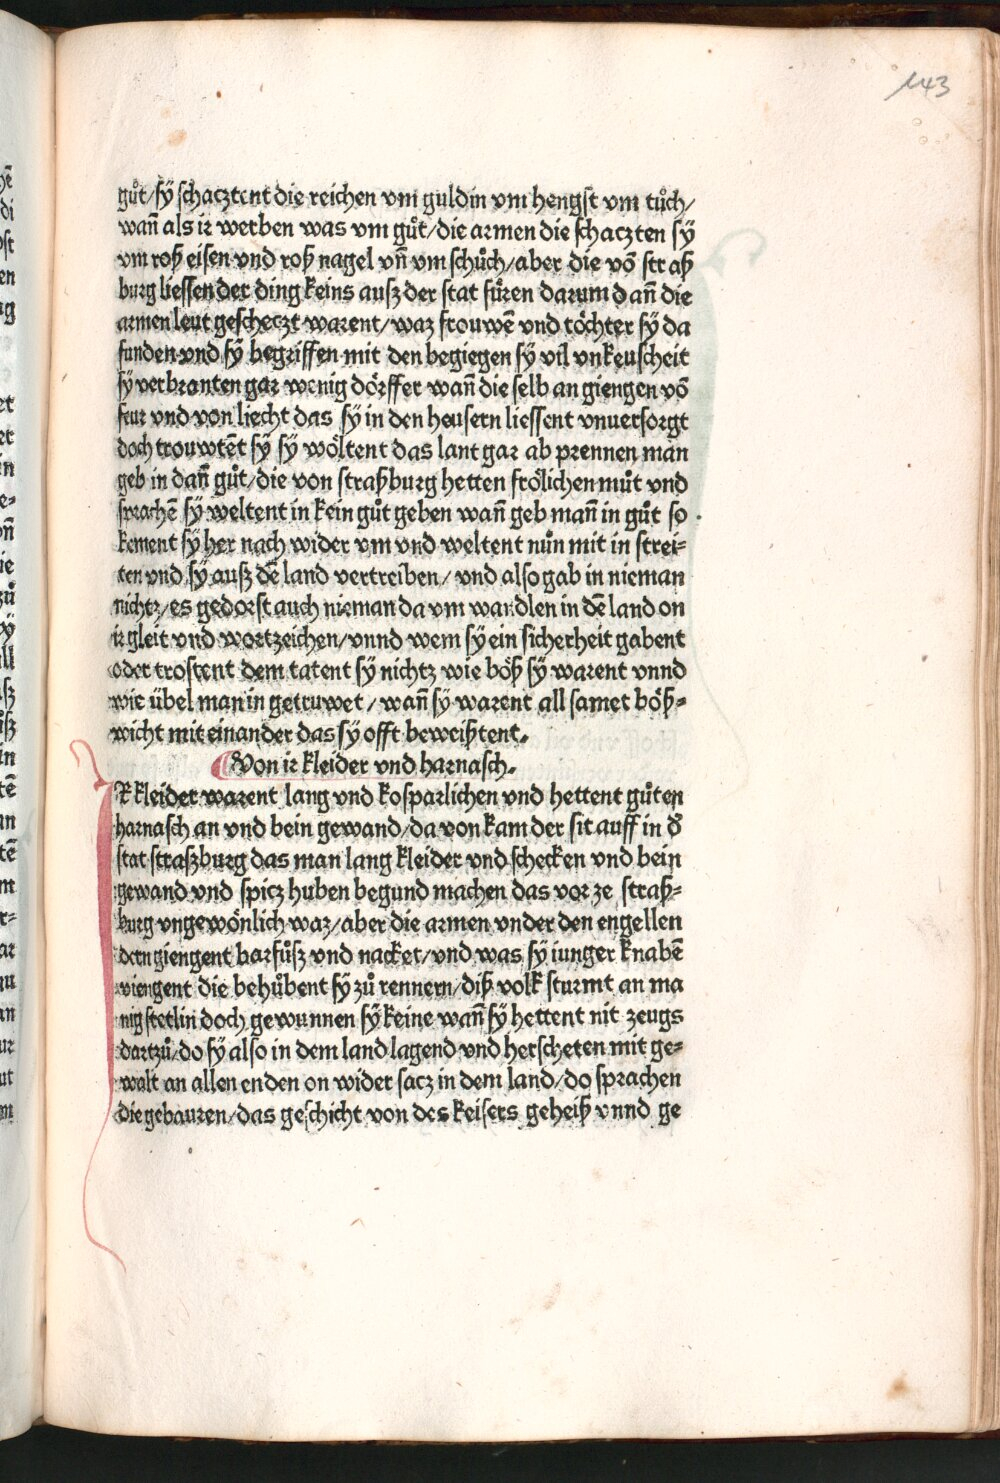 143
guͦt/sÿ schacztent die reichen vm guldin vm hengst vm tuͦch/
wañ als ir werben was vm guͦt/die armen die schaczten sÿ
vm roß eisen vnd roß nagel vñ vm schuͦch/aber die vō straß
burg liessen der ding keins ausz der stat fuͤren darum dañ die
armen leut gescheczt warent/waz frouwē vnd toͤchter sÿ da
funden vnd sÿ begriffen mit den begiegen sÿ vil vnkeuscheit
sÿ verbranten gar wenig doͤrffer wañ die selb an giengen vō
feur vnd von liecht das sÿ in den heusern liessent vnuersorgt
doch trouwtēt sÿ sÿ woͤltent das lant gar ab prennen man
geb in dañ guͦt/die von straßburg hetten froͤlichen muͦt vnd
sprachē sÿ weltent in kein guͦt geben wañ geb mañ in guͦt so
kement sÿ her nach wider vm vnd weltent nuͦn mit in strei⸗
ten vnd sÿ ausz dē land vertreiben/ vnd also gab in nieman
nichtz/es gedorst auch nieman da vm wandlen in dē land on
ir gleit vnd wortzeichen/vnnd wem sÿ ein sicherheit gabent
oder trostent dem tatent sÿ nichtz wie boͤß sÿ warent vnnd
wie übel man in getruwet/ wañ sÿ warent all samet boͤß⸗
wicht mit einander das sÿ offt beweißtent.
Von ir kleider vnd harnasch.
IR kleider warent lang vnd kosparlichen vnd hettent guͦten
harnasch an vnd bein gewand/da von kam der sit auff in d̕
stat straszburg das man lang kleider vnd schecken vnd bein
gewand vnd spicz huben begund machen das vor ze straß⸗
burg vngewoͤnlich waz/aber die armen vnder den engellen
dern giengent barfuͦsz vnd nacket/vnd was sÿ iunger knabē
viengent die behuͦbent sÿ zuͦ rennern/diß volk sturmt an ma
nig stetlin doch gewunnen sÿ keine wañ sÿ hettent nit zeugs
dartzuͦ/do sÿ also in dem land lagend vnd herscheten mit ge⸗
walt an allen enden on wider sacz in dem land/do sprachen
die gebauren/das geschicht von des keisers geheiß vnnd ge